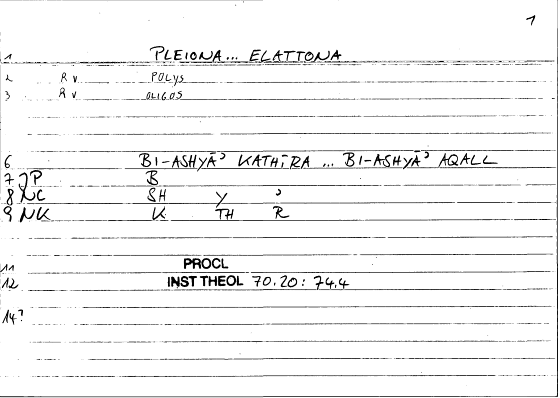 1
1 PLEIONA... ELATTONA
2 R v POLYS
3 R v OLIGOS
6 BI-ASHYĀʾ KATHĪRA ... BI-ASHYĀʾ AQALL
7 JP B
8 NC SH Y ʾ
9 NK K TH R
11 PROCL
12 INST THEOL 70.20 : 74.4
14?